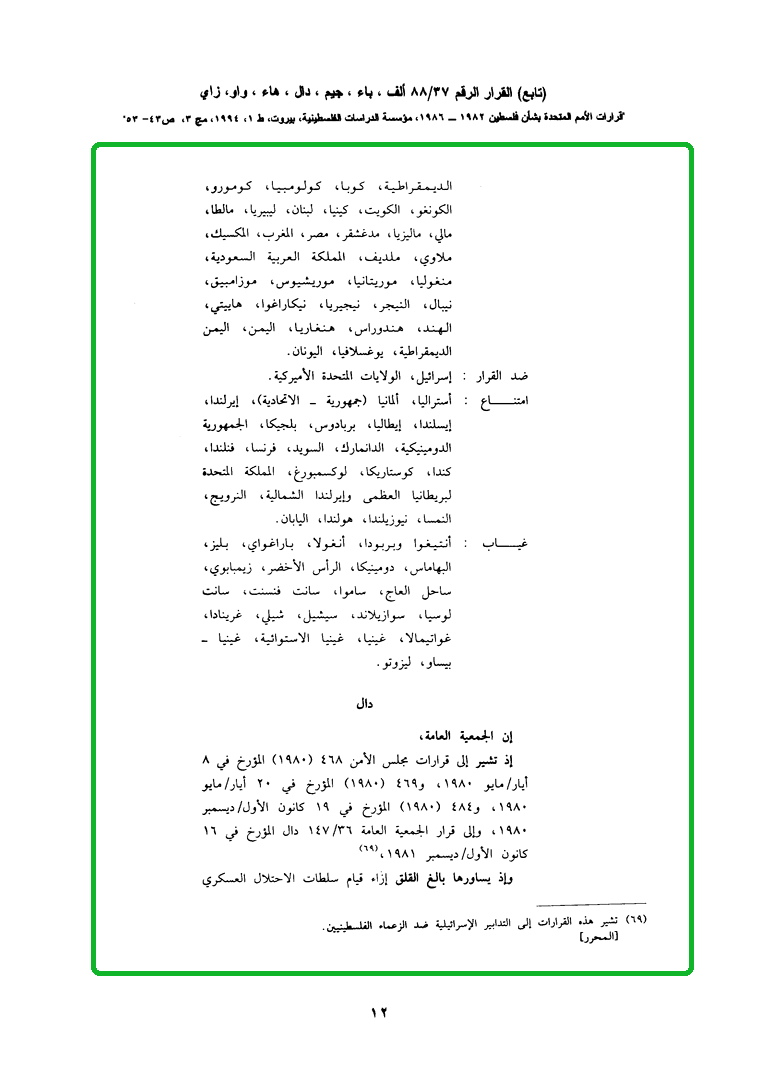 (تابع) القرار الرقم ٨٨/٣٧ ألف ، باء ، جيم ، دال ، هاء ، واو، زاي
"قرارات الأمم المتحدة بشأن فلسطين ١٩٨٢ ــ ١٩٨٦، مؤسسة الدراسات الفلسطينية، بيروت، ط ١، ١٩٩٤، مج ٣، ص٤٣- ٥٣"
الديمقراطية، كوبا، كولومبيا، كومورو،
الكونغو، الكويت، كينيا، لبنان، ليبيريا، مالطا،
مالي، ماليزيا، مدغشقر، مصر، المغرب، المكسيك،
ملاوي، ملديف، المملكة العربية السعودية،
منغوليا، موريتانيا، موريشيوس، موزامبيق،
نيبال، النيجر، نيجيريا، نيكاراغوا، هاييتي،
الهند، هندوراس، هنغاريا، اليمن، اليمن
الديمقراطية، يوغسلافيا، اليونان.
ضد القرار : إسرائيل، الولايات المتحدة الأميركية.
امتنـــاع : أستراليا، ألمانيا (جمهورية ــ الاتحادية)، إيرلندا،
إيسلندا، إيطاليا، بربادوس، بلجيكا، الجمهورية
الدومينيكية، الدانمارك، السويد، فرنسا، فنلندا،
كندا، كوستاريكا، لوكسمبورغ، المملكة المتحدة
لبريطانيا العظمى وإيرلندا الشمالية، النرويج،
النمسا، نيوزيلندا، هولندا، اليابان.
غيـــاب : أنتيغوا وبربودا، أنغولا، باراغواي، بليز،
البهاماس، دومينيكا، الرأس الأخضر، زيمبابوي،
ساحل العاج، ساموا، سانت فنسنت، سانت
لوسيا، سوازيلاند، سيشيل، شيلي، غرينادا،
غواتيمالا، غينيا، غينيا الاستوائية، غينيا ــ
بيساو، ليزوتو.
دال
إن الجمعية العامة،
إذ تشير إلى قرارات مجلس الأمن ٤٦٨ (١٩٨٠) المؤرخ في ٨
أيار/مايو ١٩٨٠، و٤٦٩ (١٩٨٠) المؤرخ في ٢٠ أيار/مايو
١٩٨٠، و٤٨٤ (١٩٨٠) المؤرخ في ١٩ كانون الأول/ديسمبر
١٩٨٠، وإلى قرار الجمعية العامة ١٤٧/٣٦ دال المؤرخ في ١٦
كانون الأول/ديسمبر ١٩٨١،(٦٩)
وإذ يساورها بالغ القلق إزاء قيام سلطات الاحتلال العسكري
(٦٩) تشير هذه القرارات إلى التدابير الإسرائيلية ضد الزعماء الفلسطينيين.
[المحرر]
١٢